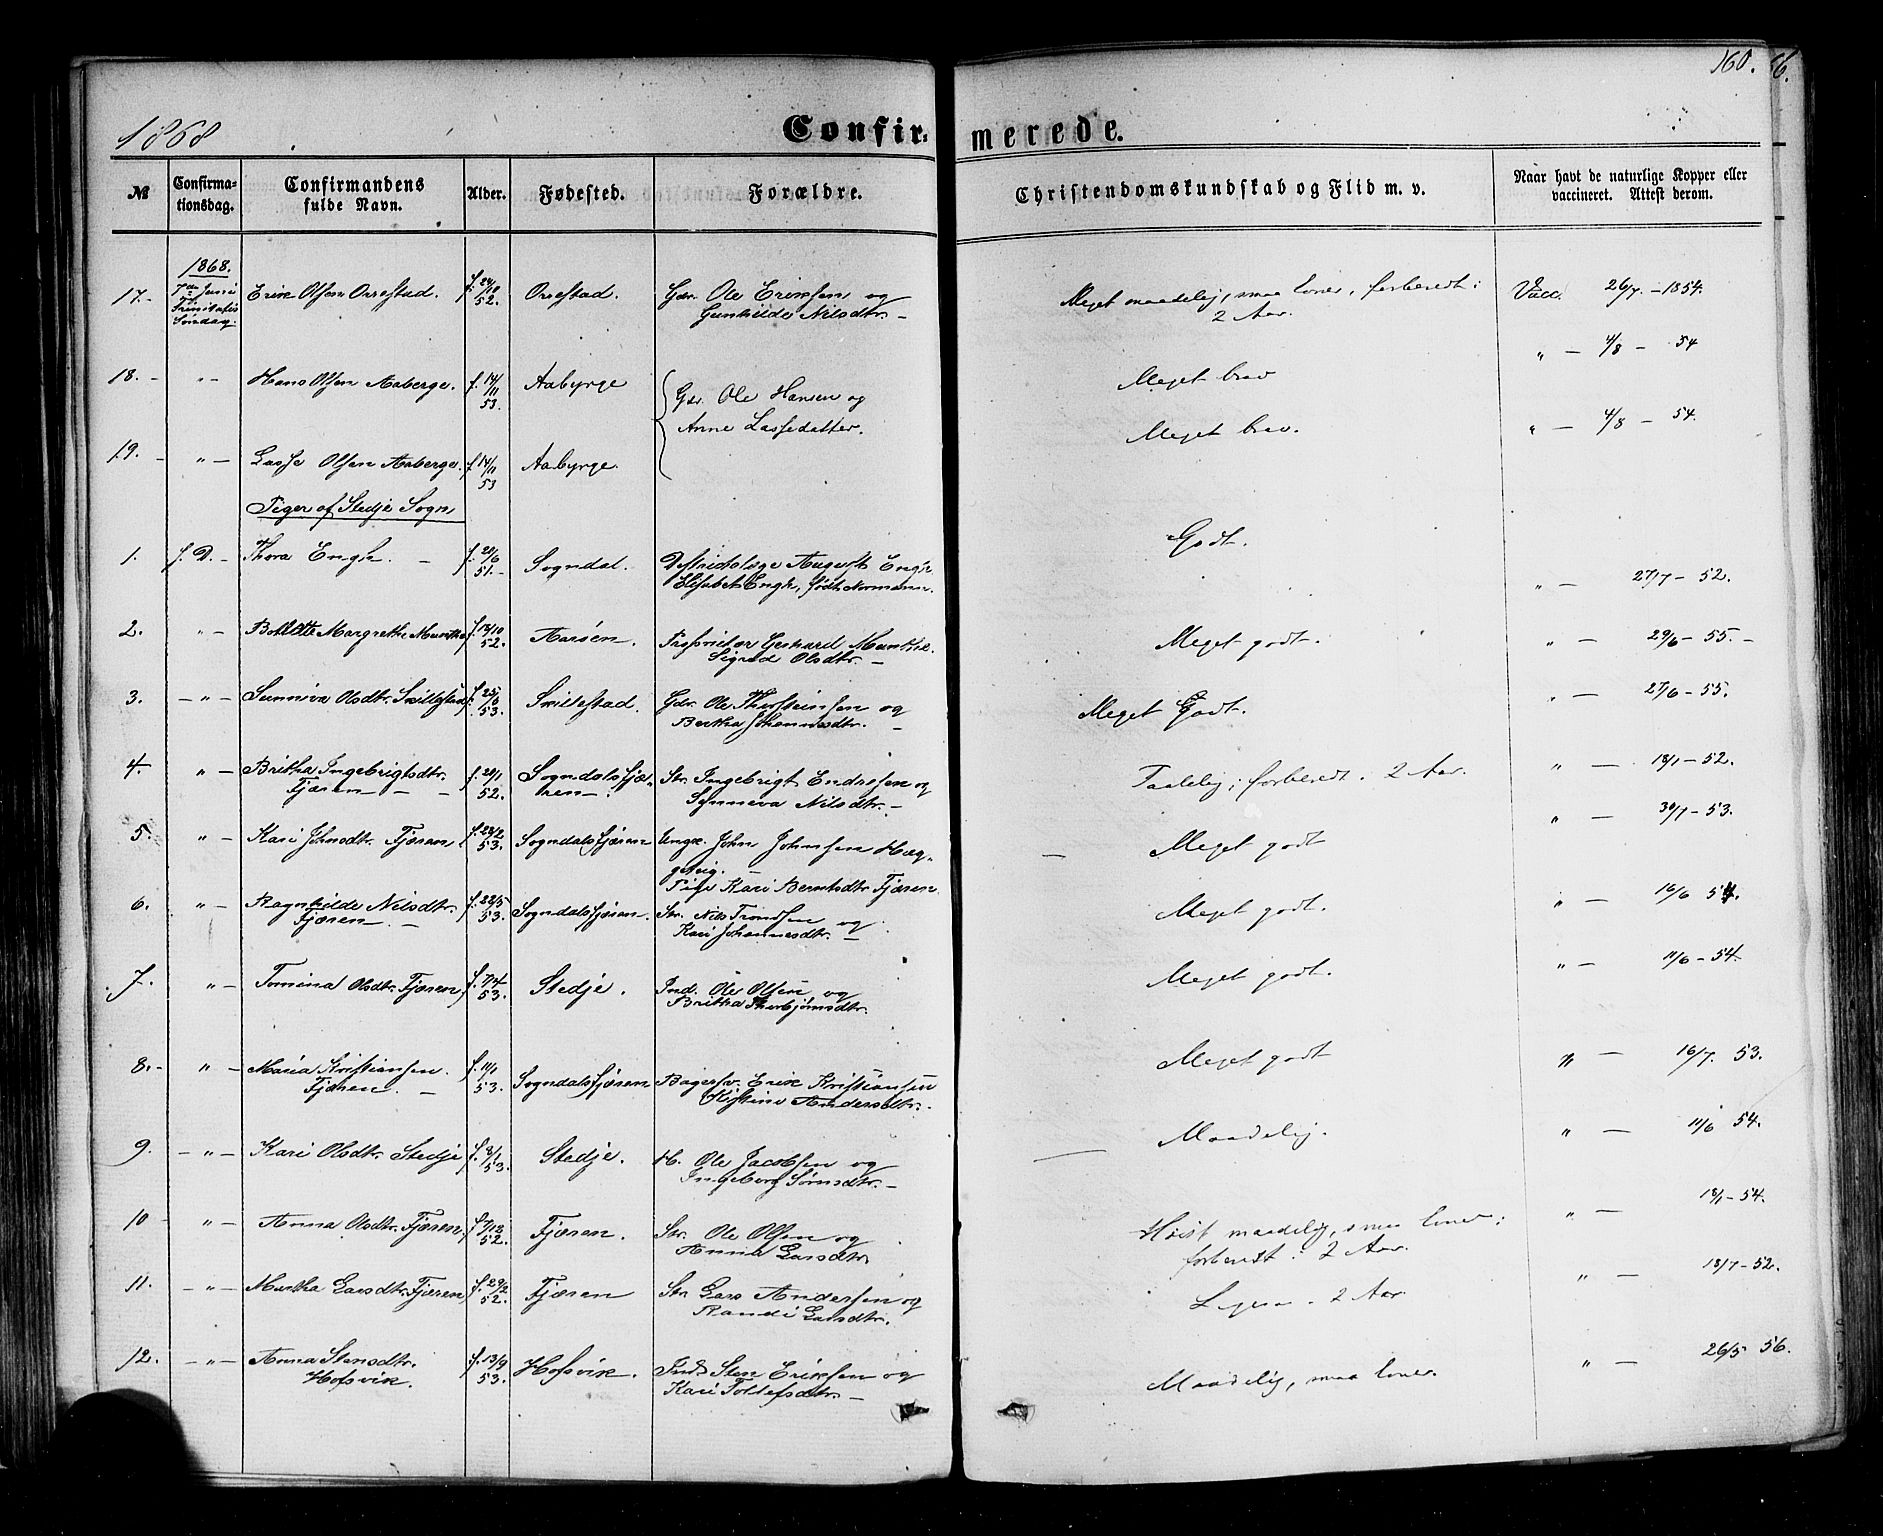 160.
1868
Confirmerede.
№
Confirmationsdag.
Confirmandens fulde Navn.
Alder.
Fødested.
Forældre.
Christendomskundskab og Flid m. v.
Naar havt de naturlige Kopper eller vaccineret. Attest derom.
1868.
17. 7de Juni Trinitatis Søndag Erik Olsen Orrestad. f. 24/10 52. Orrestad. Gdr. Ole Eriksen og Meget maadelig, smaa Evner, forberedt: Vacc. 26/7 - 1854.
Gunhilde Nilsdtr. - 2 Aar.
18. - " - Hans Olsen Aaberge. f. 14/11 53. Aabyrge Gdr. Ole Hansen og Meget brav " - 4/8 - 54
Anne Lassedatter.
19. - " - Lasse Olsen Aaberge. f. 14/11 53 Aabyrge. Meget brav. " - 4/8 - 54.
Piger af Stedje Sogn
1. f. D. - Thora Engh. - f. 20/6 51. - Sogndal. Distriktslæge August Engh Godt. " - 27/7 - 52.
Elisabet Engh, født Normann.
2. " - Bolette Margrethe Munthe f. 18/10 52. Aarøen. Proprietær Gerhard Munthe. Meget godt. " - 29/6 - 55. -
Sigrid Olsdtr. -
3. - " - Sunniva Olsdtr. Skillestad f. 25/6 53. Skillestad. Gdr. Ole Thorsteinsen og Meget Godt. " - 27/6 - 55.
Bertha Johannesdtr. -
4. " - Britha Ingebrigtsdtr. f. 20/1 52. Sogndalsfjæren. Str. Ingebrigt Endresen og Taalelig; forberedt. 2 Aar. " - 18/1 - 52.
Fjæren - - Synneva Nilsdtr. -
5. " - Kari Johnsdtr. Fjæren f. 23/2 53. Sogndalsfjæren Ungk. John Johnsen Hæg- - Meget godt " - 30/7 - 53.
gitvig. -
Pige Kari Berntsdtr Fjæren
6. " - Ragnhilde Nilsdtr. f. 28/5 53. Sogndalsfjæren. Str. Nils Trondsen og Meget godt. " - 16/6 54.
Fjæren. - Kari Johannesdtr. -
7. " - Tomina Olsdtr. Fjæren f. 7/4 53. Stedje. Ind. Ole Olsen og Meget godt. " - 11/6 - 54.
Britha Thorbjørnsdtr.
8. - " - Maria Kristiansen. f. 11/1 53. Sogndalsfjæren Bagersv. Erik Kristiansen Meget godt " - 16/7. 53.
Fjæren. - Kristine Andersdtr. -
9. - " - Kari Olsdtr. Stedje f. 3/1 53. Stedje. H. Ole Jacobsen og - Maadelig. " - 11/6 54.
Ingeborg Sørnsdtr. -
10 - " - Anna Olsdtr. Fjæren f. 7/12 52. Fjæren. Str. Ole Olsen og Høist maadelig, smaa Evner; " - 18/1 - 54.
Anna Larsdtr. forberedt: 2 Aar.
11. - " - Martha Larsdtr. Fjæren f. 29/2 52. Fjæren Str Lars Andersen og Ligesaa. 2 Aar " - 18/7 - 52.
Randi Larsdtr.
12. - " - Anna Stensdtr. f. 13/9 53. Hofsvik. Inds Sten Eriksen og Maadelig, smaa Evner. " - 26/5 56.
Hofsvik. Kari Tollefsdtr. -